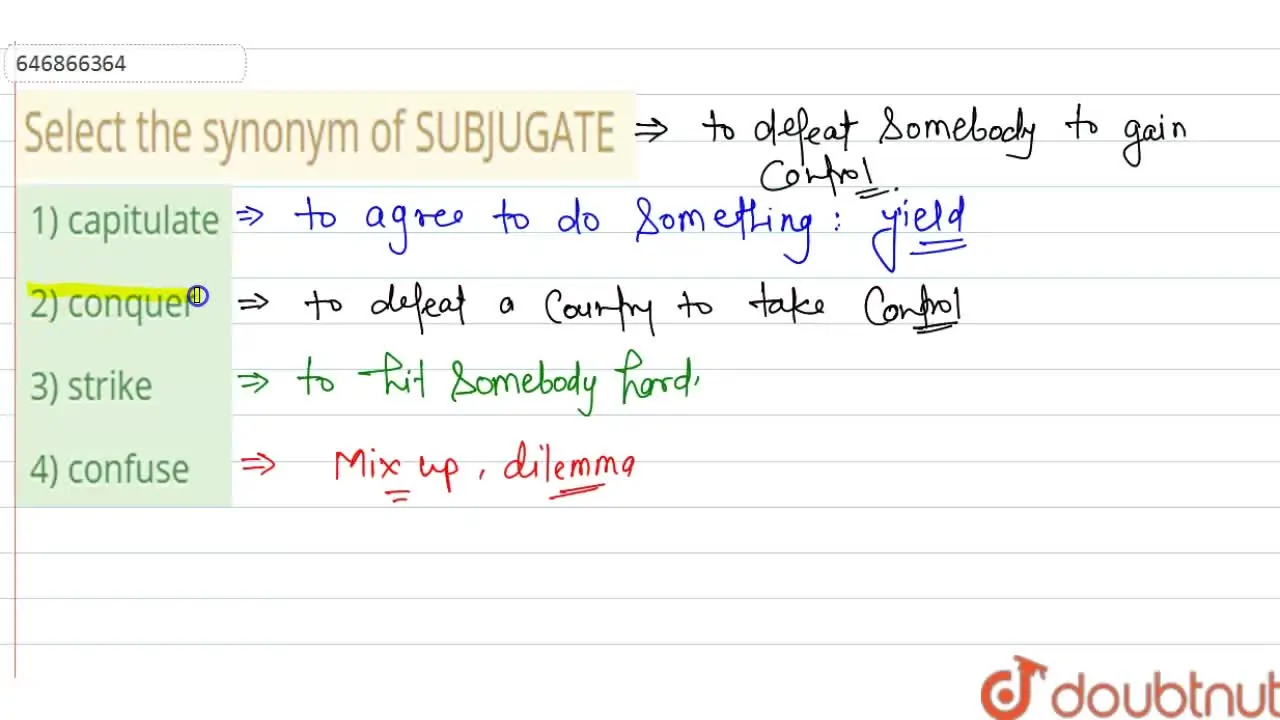 646866364
Select the synonym of SUBJUGATE ⇒ to defeat Somebody to gain
Control.
1) capitulate ⇒ to agree to do Something: yield
2) conquer ⇒ to defeat a Country to take Control
3) strike ⇒ to hit Somebody hard.
4) confuse ⇒ Mix up, dilemma
doubtnut